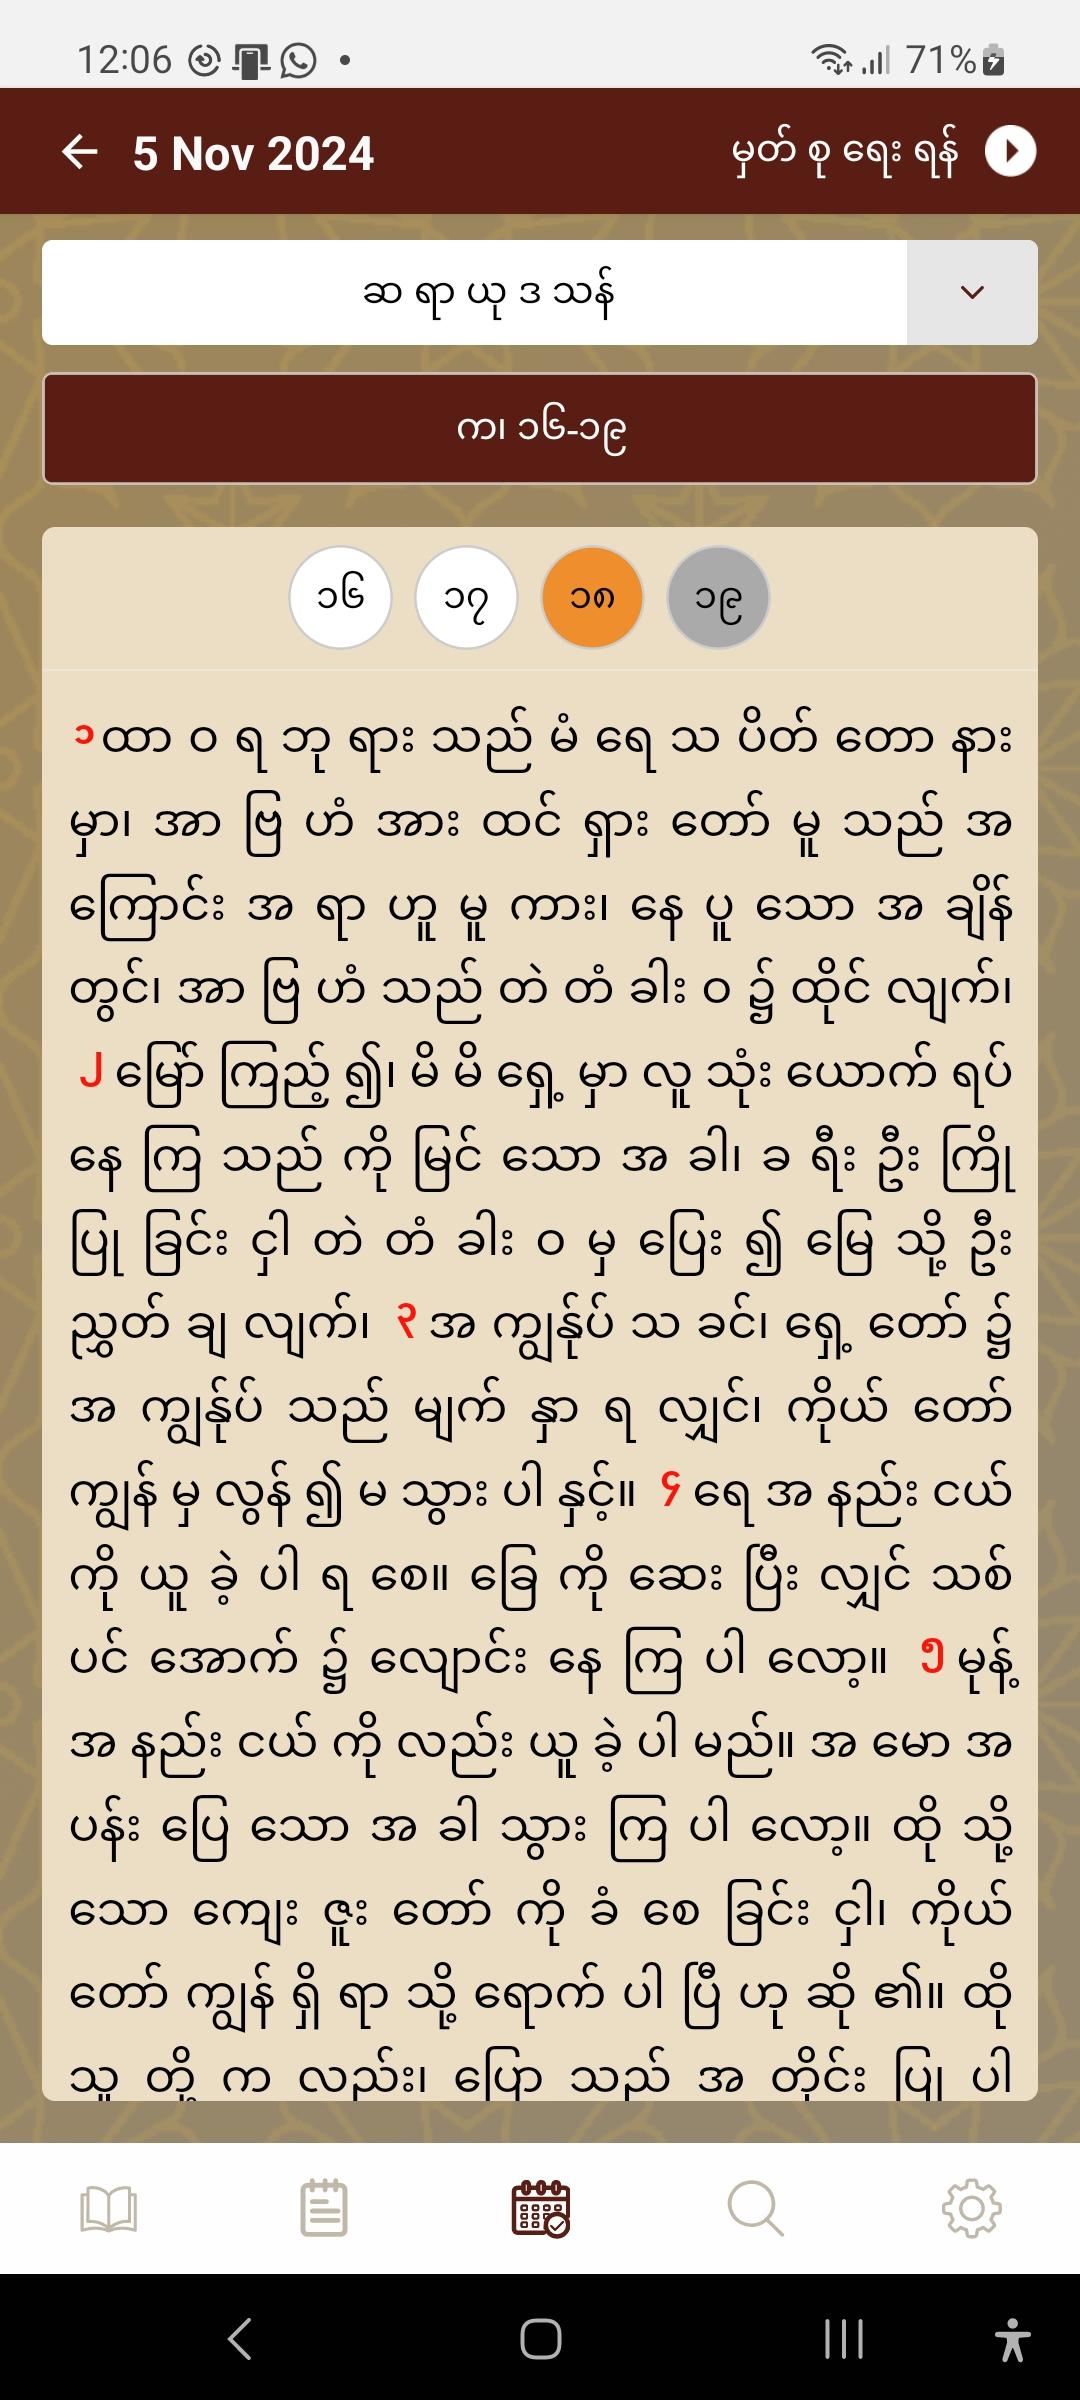 12:06
71%
5 Nov 2024
မှတ် စု ရေး ရန်
ဆ ရာ ယု ဒ သန်
က၊ ၁၆-၁၉
၁၆ ၁၇ ၁၈ ၁၉
၁ ထာ ဝ ရ ဘု ရား သည် မံ ရေ သ ပိတ် တော နား
မှာ၊ အာ ဗြ ဟံ အား ထင် ရှား တော် မူ သည် အ
ကြောင်း အ ရာ ဟူ မူ ကား၊ နေ ပူ သော အ ချိန်
တွင်၊ အာ ဗြ ဟံ သည် တဲ တံ ခါး ဝ ၌ ထိုင် လျက်၊
၂ မြော် ကြည့် ၍၊ မိ မိ ရှေ့ မှာ လူ သုံး ယောက် ရပ်
နေ ကြ သည် ကို မြင် သော အ ခါ၊ ခ ရီး ဦး ကြို
ပြု ခြင်း ငှါ တဲ တံ ခါး ဝ မှ ပြေး ၍ မြေ သို့ ဦး
ညွှတ် ချ လျက်၊ ၃ အ ကျွန်ုပ် သ ခင်၊ ရှေ့ တော် ၌
အ ကျွန်ုပ် သည် မျက် နှာ ရ လျှင်၊ ကိုယ် တော်
ကျွန် မှ လွန် ၍ မ သွား ပါ နှင့်။ ၄ ရေ အ နည်း ငယ်
ကို ယူ ခဲ့ ပါ ရ စေ။ ခြေ ကို ဆေး ပြီး လျှင် သစ်
ပင် အောက် ၌ လျောင်း နေ ကြ ပါ လော့။ ၅ မုန့်
အ နည်း ငယ် ကို လည်း ယူ ခဲ့ ပါ မည်။ အ မော အ
ပန်း ပြေ သော အ ခါ သွား ကြ ပါ လော့။ ထို သို့
သော ကျေး ဇူး တော် ကို ခံ စေ ခြင်း ငှါ၊ ကိုယ်
တော် ကျွန် ရှိ ရာ သို့ ရောက် ပါ ပြီ ဟု ဆို ၏။ ထို
သူ တို့ က လည်း၊ ပြော သည် အ တိုင်း ပြု ပါ